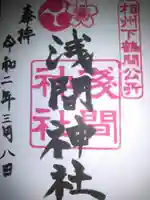 相州下鶴間公所
浅間神社
淺間神社
奉拝
令和二年三月八日